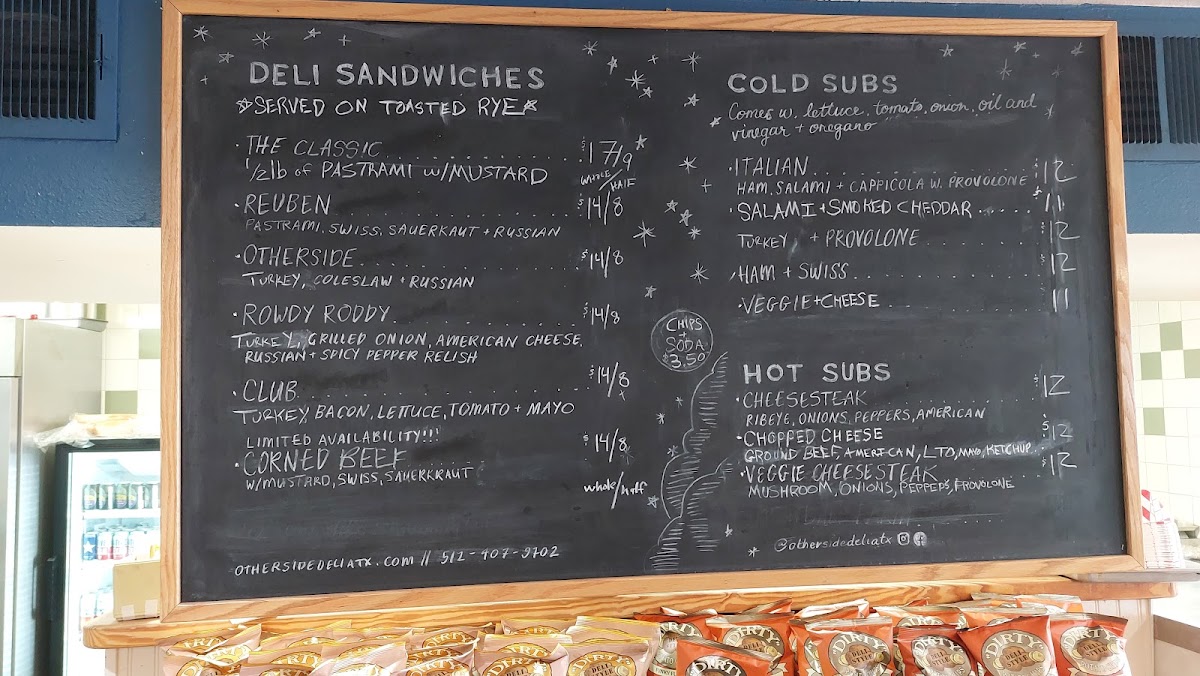 DELI SANDWICHES
☆SERVED ON TOASTED RYE☆
·THE CLASSIC . . . . . . . . . . $17/9
1/2lb of PASTRAMI w/MUSTARD
WHOLE/HALF
·REUBEN . . . . . . . . . . $14/8
PASTRAMI, SWISS, SAUERKRAUT + RUSSIAN
·OTHERSIDE . . . . . . . . . . $14/8
TURKEY, COLESLAW + RUSSIAN
·ROWDY RODDY . . . . . . . . . . $14/8
TURKEY, GRILLED ONION, AMERICAN CHEESE,
RUSSIAN + SPICY PEPPER RELISH
·CLUB . . . . . . . . . . $14/8
TURKEY, BACON, LETTUCE, TOMATO + MAYO
LIMITED AVAILABILITY!!!
·CORNED BEEF . . . . . . . . . . $14/8
W/MUSTARD, SWISS, SAUERKRAUT
whole/half
OTHERSIDEDELIATX.COM // 512-907-9702
CHIPS
+
SODA
$3.50
COLD SUBS
Comes w. lettuce, tomato, onion, oil and
vinegar + oregano
·ITALIAN . . . . . . . . . . $12
HAM, SALAMI + CAPPICOLA W. PROVOLONE
·SALAMI + SMOKED CHEDDAR . . . . . $11
TURKEY + PROVOLONE . . . . . . . $12
·HAM + SWISS . . . . . . . . . . $12
·VEGGIE + CHEESE . . . . . . . . 11
HOT SUBS
·CHEESESTEAK . . . . . . . . . . $12
RIBEYE, ONIONS, PEPPERS, AMERICAN
·CHOPPED CHEESE . . . . . . . . $12
GROUND BEEF, AMERICAN, LTO, MAYO, KETCHUP
·VEGGIE CHEESESTEAK . . . . . . . $12
MUSHROOM, ONIONS, PEPPERS, PROVOLONE
@othersidedeliatx
DIRTY
DIRTY
DIRTY
DIRTY
DIRTY
DIRTY
DIRTY